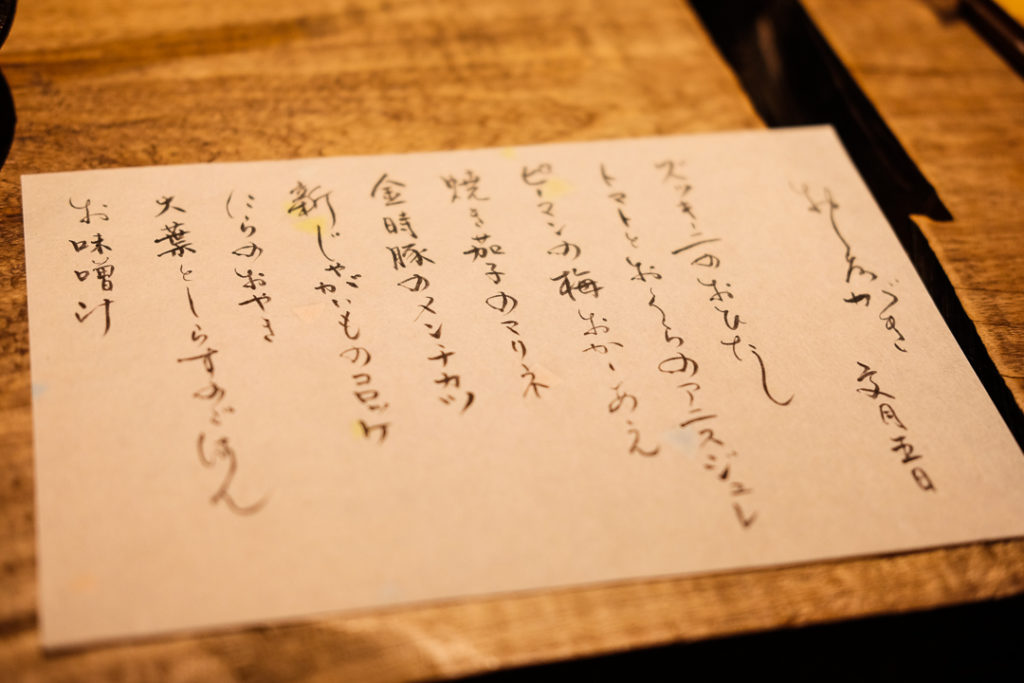 おしながき 文月五日
ズッキーニのおひたし
トマトとおくらのアニスジュレ
ピーマンの梅おかかあえ
焼き茄子のマリネ
金時豚のメンチカツ
新じゃがいものコロッケ
にらのおやき
大葉としらすのごはん
お味噌汁